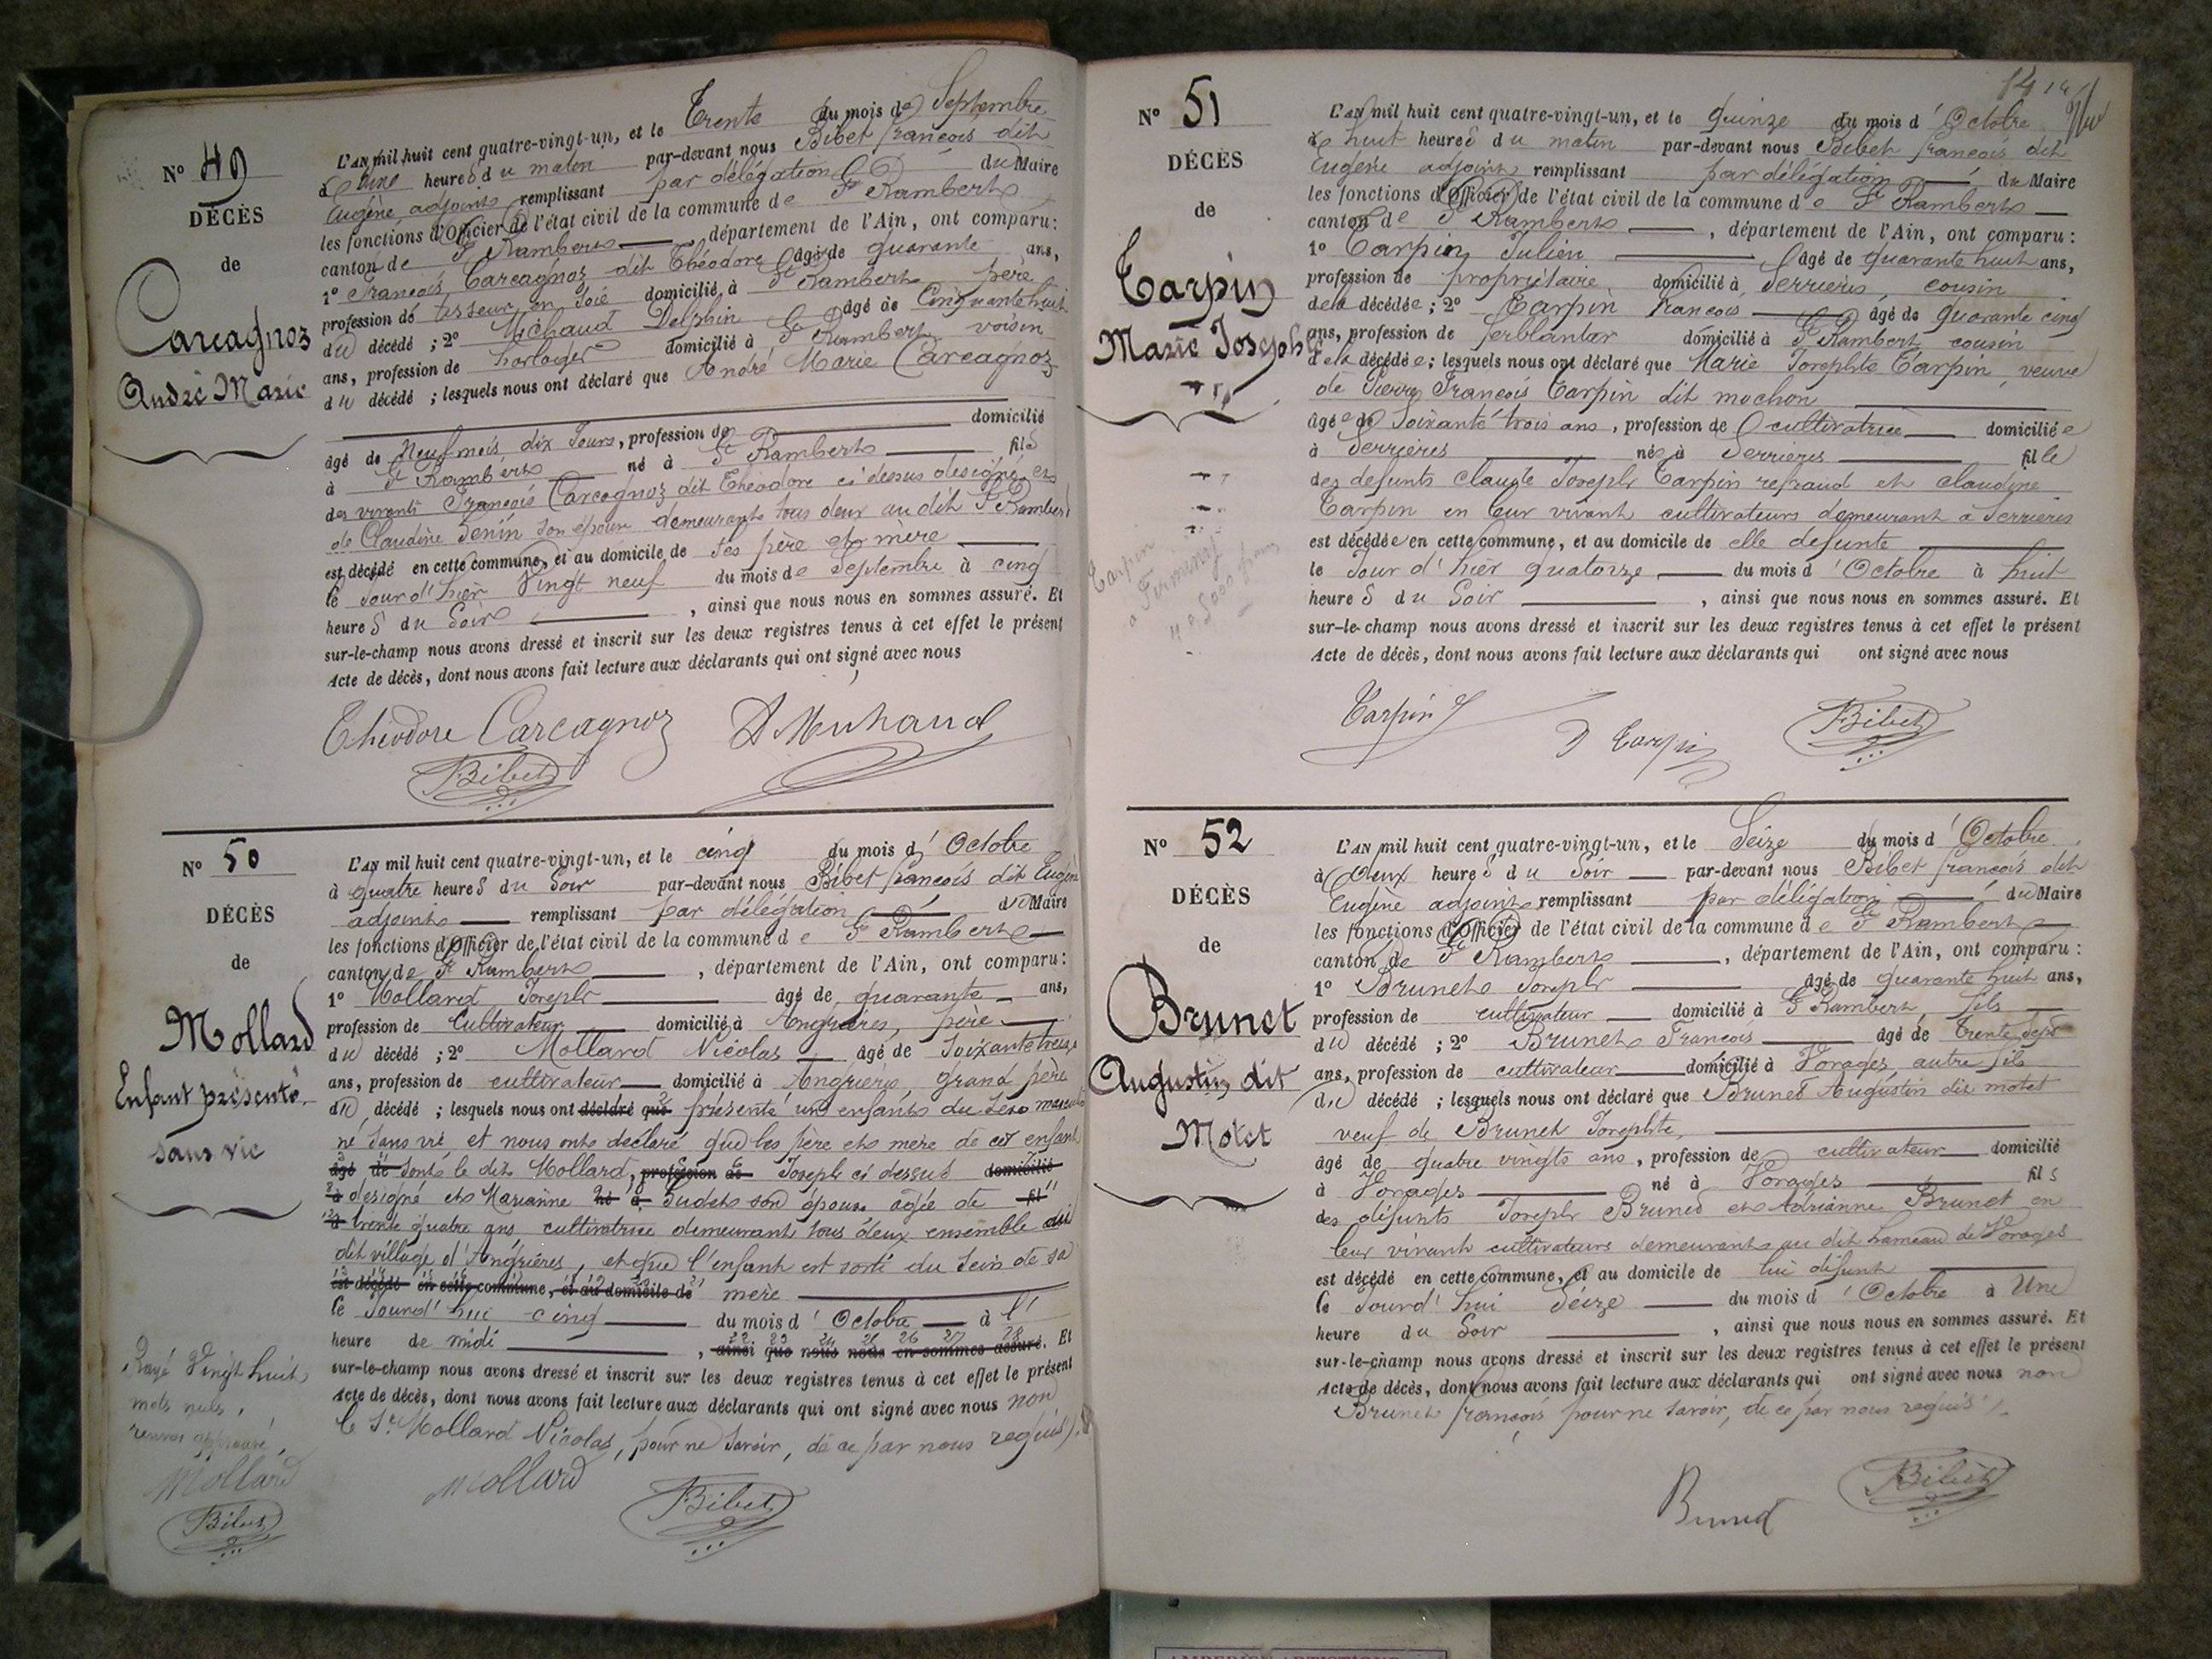 N° 49
DÉCÈS
de
Carcagnoz
André Marie
L'AN mil huit cent quatre-vingt-un, et le Trente du mois de Septembre
heures du matin par-devant nous Bibet françois dit
Eugène adjoint remplissant par délégation du Maire
les fonctions d'Officier de l'état civil de la commune de St Rambert
canton de St Rambert, département de l'Ain, ont comparu:
1° François Carcagnoz dit Théodore âgé de quarante ans,
profession de tisseur en soie domicilié à St Rambert père
du décédé; 2° Michaud Delphin âgé de Cinquante huit
ans, profession de horloger domicilié à St Rambert voisin
du décédé; lesquels nous ont déclaré que André Marie Carcagnoz
âgé de Neuf mois dix Jours, profession de domicilié
à St Rambert né à St Rambert fils
des vivants François Carcagnoz dit Théodore ci dessus désigné et
de Claudine Jenin son épouse demeurant tous deux au dit St Rambert
est décédé en cette commune, et au domicile de ses père et mère
le Jour d'hier Vingt neuf du mois de Septembre à cinq
heures du Soir, ainsi que nous nous en sommes assuré. Et
sur-le-champ nous avons dressé et inscrit sur les deux registres tenus à cet effet le présent
Acte de décès, dont nous avons fait lecture aux déclarants qui ont signé avec nous
Théodore Carcagnoz D Michaud
Bibet
N° 50
DÉCÈS
de
Mollard
Enfant présenté
sans vie
L'AN mil huit cent quatre-vingt-un, et le cinq du mois d'Octobre
à quatre heures du Soir par-devant nous Bibet françois dit Eugène
adjoint remplissant par délégation du Maire
les fonctions d'Officier de l'état civil de la commune de St Rambert
canton de St Rambert, département de l'Ain, ont comparu:
1° Mollard Joseph âgé de quarante ans,
profession de Cultivateur domicilié à Angrières, père
du décédé; 2° Mollard Nicolas âgé de Soixante treize
ans, profession de cultivateur domicilié à Angrières grand père
du décédé; lesquels nous ont déclaré que présenté un enfant du sexe masculin
né sans vie et nous ont déclaré que les père et mère de cet enfant
âgé de sont le dit Mollard, profession de Joseph ci dessus domicilié
à désigné et Marianne né à Judet son épouse agée de fil
à trente quatre ans, cultivatrice demeurant tous deux ensemble au
dit village d'Angrières, et que l'enfant est sorti du sein de sa
est décédé en cette commune, et au domicile de mère
le Jourd'hui cinq du mois d'Octobre à l'
heure de midi, ainsi que nous nous en sommes assuré. Et
sur-le-champ nous avons dressé et inscrit sur les deux registres tenus à cet effet le présent
Acte de décès, dont nous avons fait lecture aux déclarants qui ont signé avec nous non
le Sr Mollard Nicolas, pour ne savoir, de ce par nous requis).
Rayé Vingt huit
mots nuls,
renvoi approuvé,
Mollard
Bibet
Mollard Bibet
14
N° 51
DÉCÈS
de
Tarpin
Marie Josephte
Tarpin
a
L'AN mil huit cent quatre-vingt-un, et le quinze du mois d'Octobre
à huit heures du matin par-devant nous Bibet françois dit
Eugène adjoint remplissant par délégation du Maire
les fonctions d'Officier de l'état civil de la commune de St Rambert
canton de St Rambert, département de l'Ain, ont comparu:
1° Tarpin Julien âgé de quarante huit ans,
profession de propriétaire domicilié à Serrières, cousin
de la décédée; 2° Tarpin François âgé de quarante cinq
ans, profession de ferblantier domicilié à St Rambert cousin
de la décédée; lesquels nous ont déclaré que Marie Josephte Tarpin, veuve
de Pierre François Tarpin dit mochon
âgée de Soixante trois ans, profession de cultivatrice domiciliée
à Serrières née à Serrières fille
des défunts claude Joseph Tarpin refraud et claudine
Tarpin en leur vivant cultivateurs demeurant à Serrières
est décédée en cette commune, et au domicile de elle défunte
le Jour d'hier quatorze du mois d'Octobre à huit
heures du Soir, ainsi que nous nous en sommes assuré. Et
sur-le-champ nous avons dressé et inscrit sur les deux registres tenus à cet effet le présent
Acte de décès, dont nous avons fait lecture aux déclarants qui ont signé avec nous
Tarpin J Tarpin Bibet
N° 52
DÉCÈS
de
Brunet
Augustin dit
Motet
L'AN mil huit cent quatre-vingt-un, et le Seize du mois d'Octobre
à Deux heures du Soir par-devant nous Bibet françois dit
Eugène adjoint remplissant par délégation du Maire
les fonctions d'Officier de l'état civil de la commune de St Rambert
canton de St Rambert, département de l'Ain, ont comparu:
1° Brunet Joseph âgé de quarante huit ans,
profession de cultivateur domicilié à St Rambert, fils
du décédé; 2° Brunet François âgé de trente sept
ans, profession de cultivateur domicilié à Vorages autre fils
du décédé; lesquels nous ont déclaré que Brunet Augustin dit motet
veuf de Brunet Josephte,
âgé de quatre vingts ans, profession de cultivateur domicilié
à Vorages né à Vorages fils
des défunts Joseph Brunet et Adrianne Brunet en
leur vivant cultivateurs demeurant au dit hameau de Vorages
est décédé en cette commune, et au domicile de lui défunt
le Jourd'hui Seize du mois d'Octobre à Une
heure du Soir, ainsi que nous nous en sommes assuré. Et
sur-le-champ nous avons dressé et inscrit sur les deux registres tenus à cet effet le présent
Acte de décès, dont nous avons fait lecture aux déclarants qui ont signé avec nous non
Brunet françois pour ne savoir, de ce par nous requis
Brunet Bibet